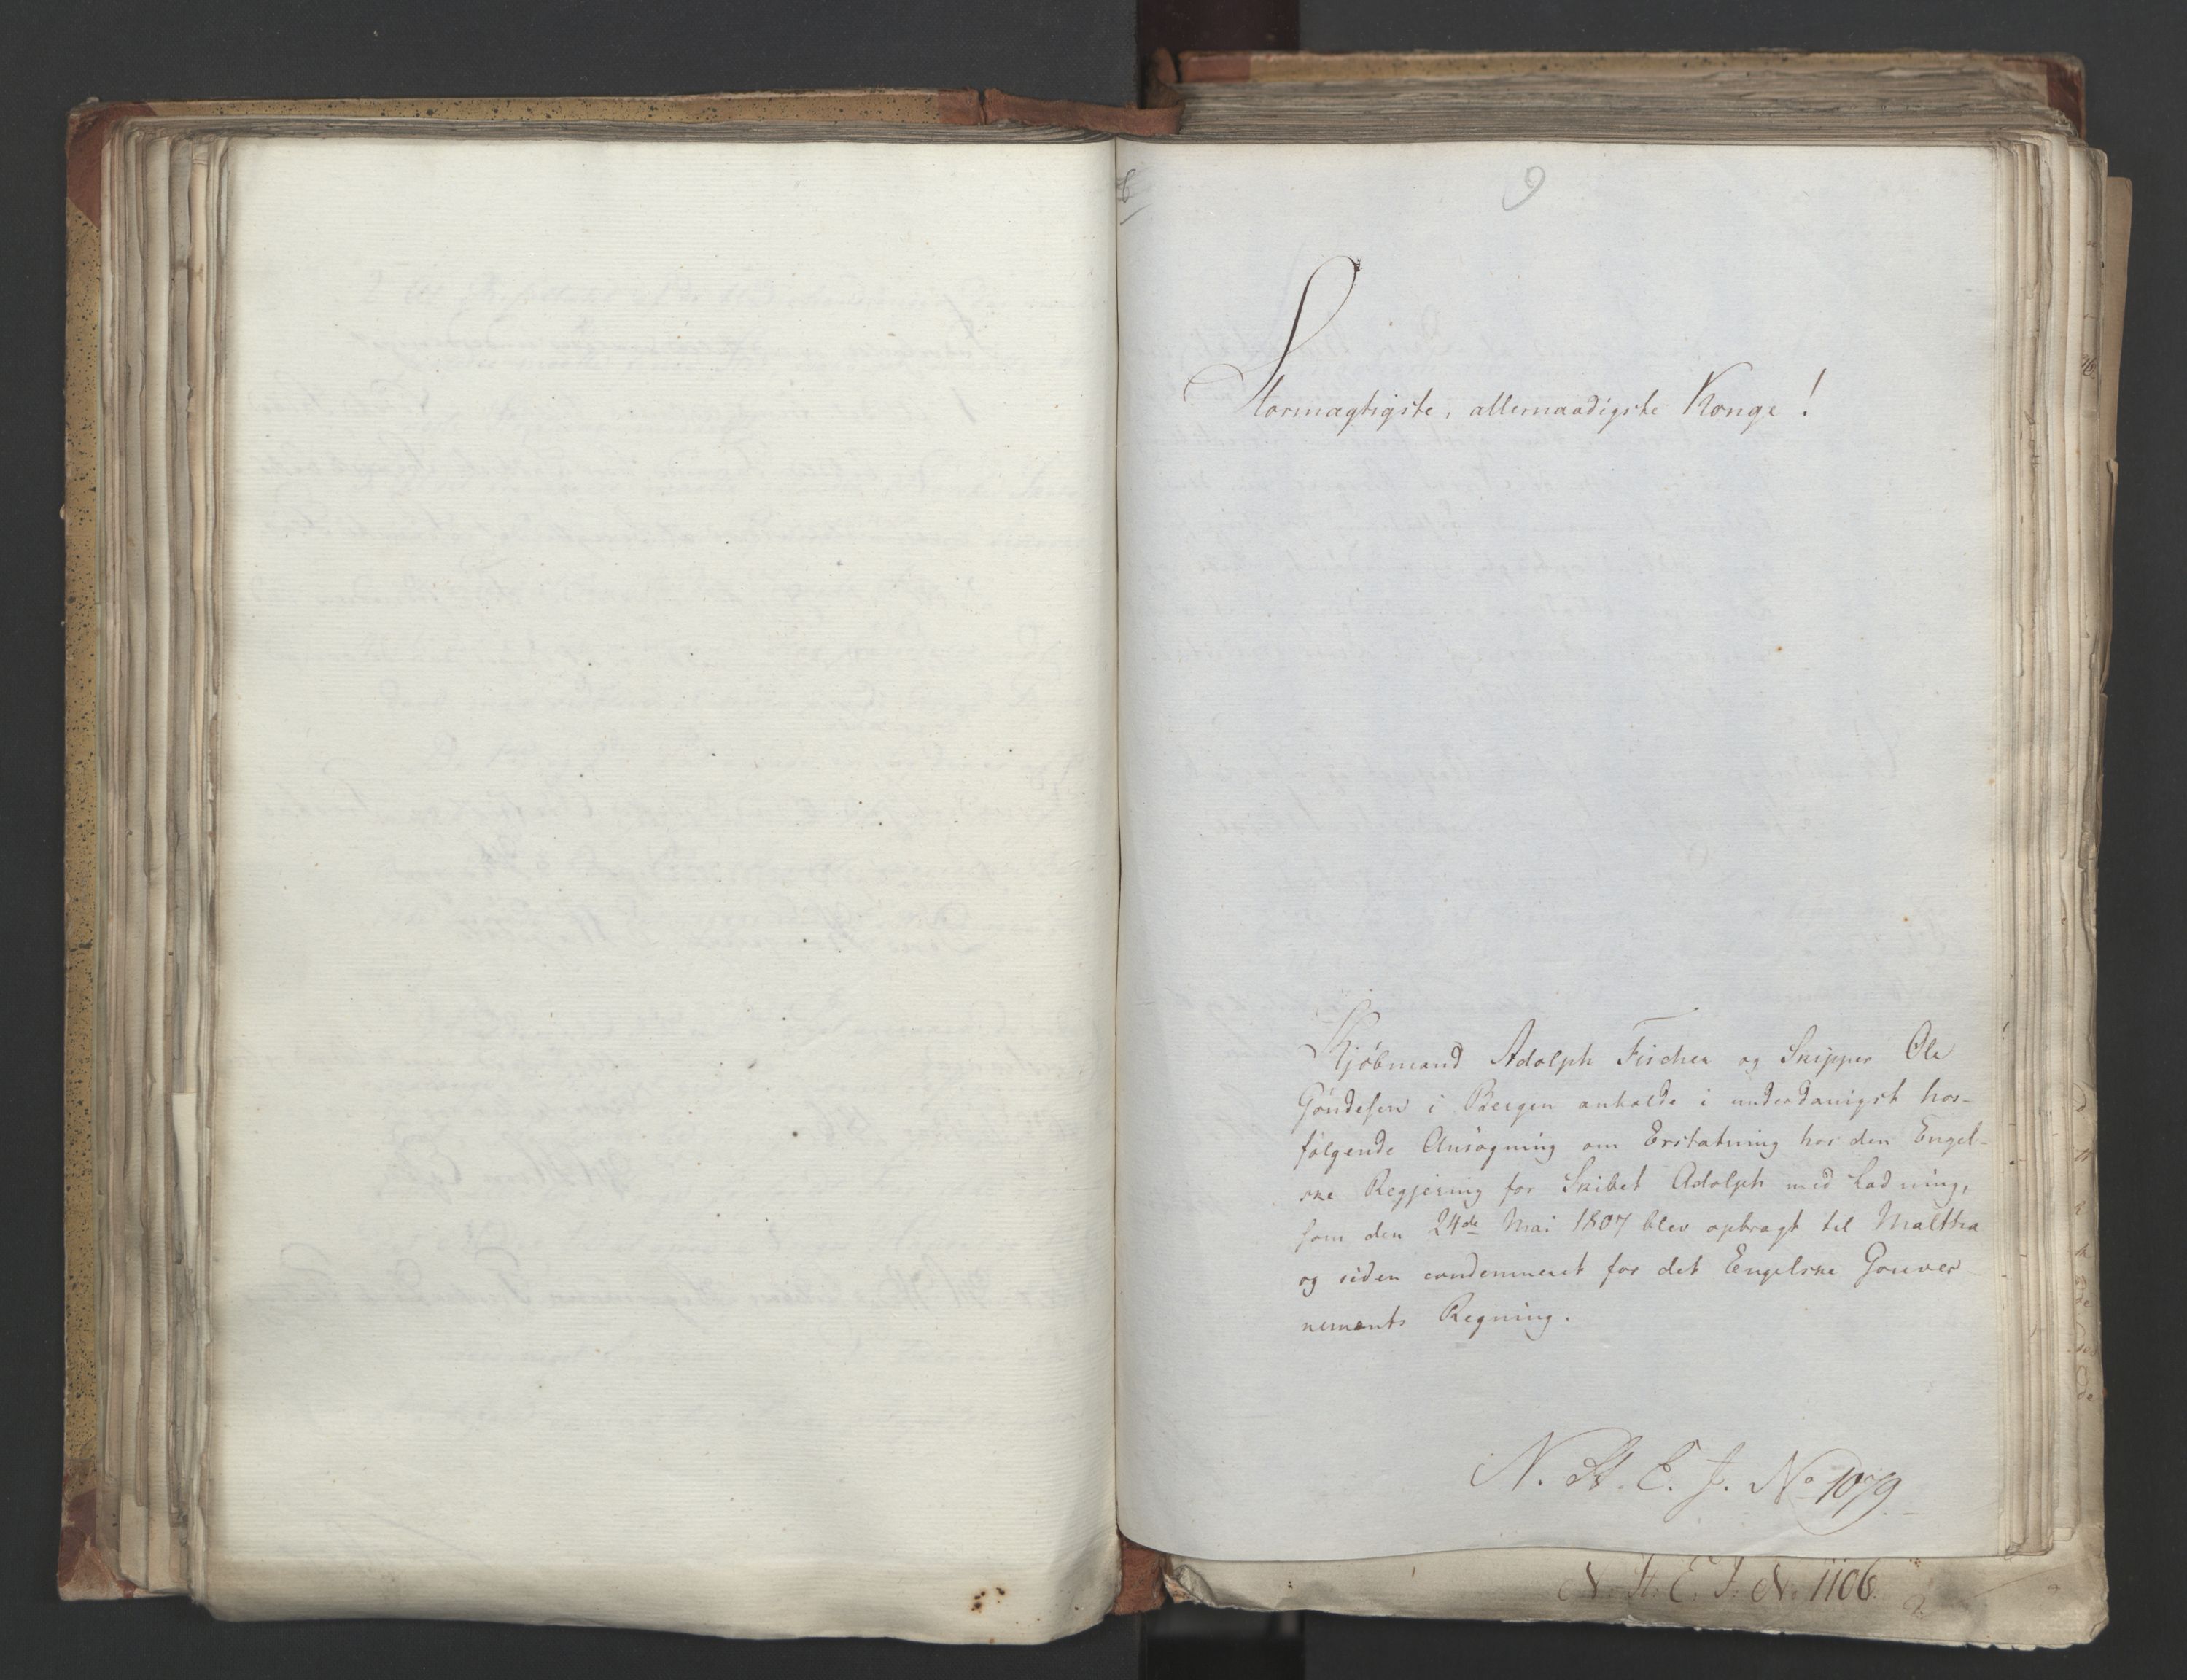 9
Stormægtigste, allernaadigste Konge!
Kjöbmand Adolph Fischer og Skipper Ole
Göndesen i Bergen anholde i underdanigst hos-
følgende Ansøgning om Erstatning hos den Engel-
ske Regjering for Skibet Adolph med Ladning,
som den 24de Mai 1807 blev opbragt til Maltha
og siden condemneret for det Engelske Gouver
nements Regning.
N. St. E. J. No 1079.
N. St. E. J. N. 1106.